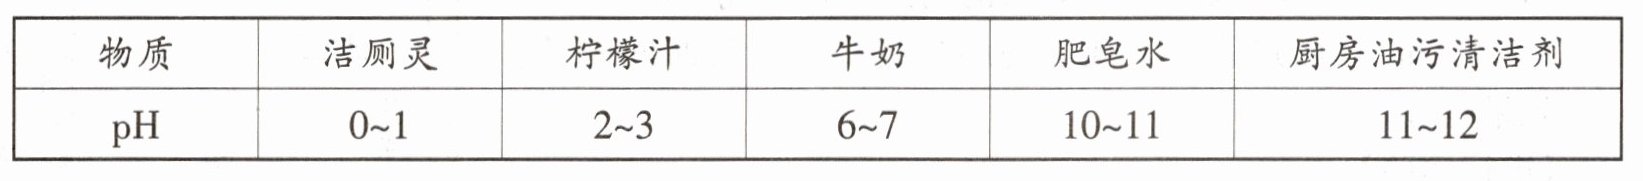 物质 洁厕灵 柠檬汁 牛奶 肥皂水 厨房油污清洁剂
pH 0~1 2~3 6~7 10~11 11~12